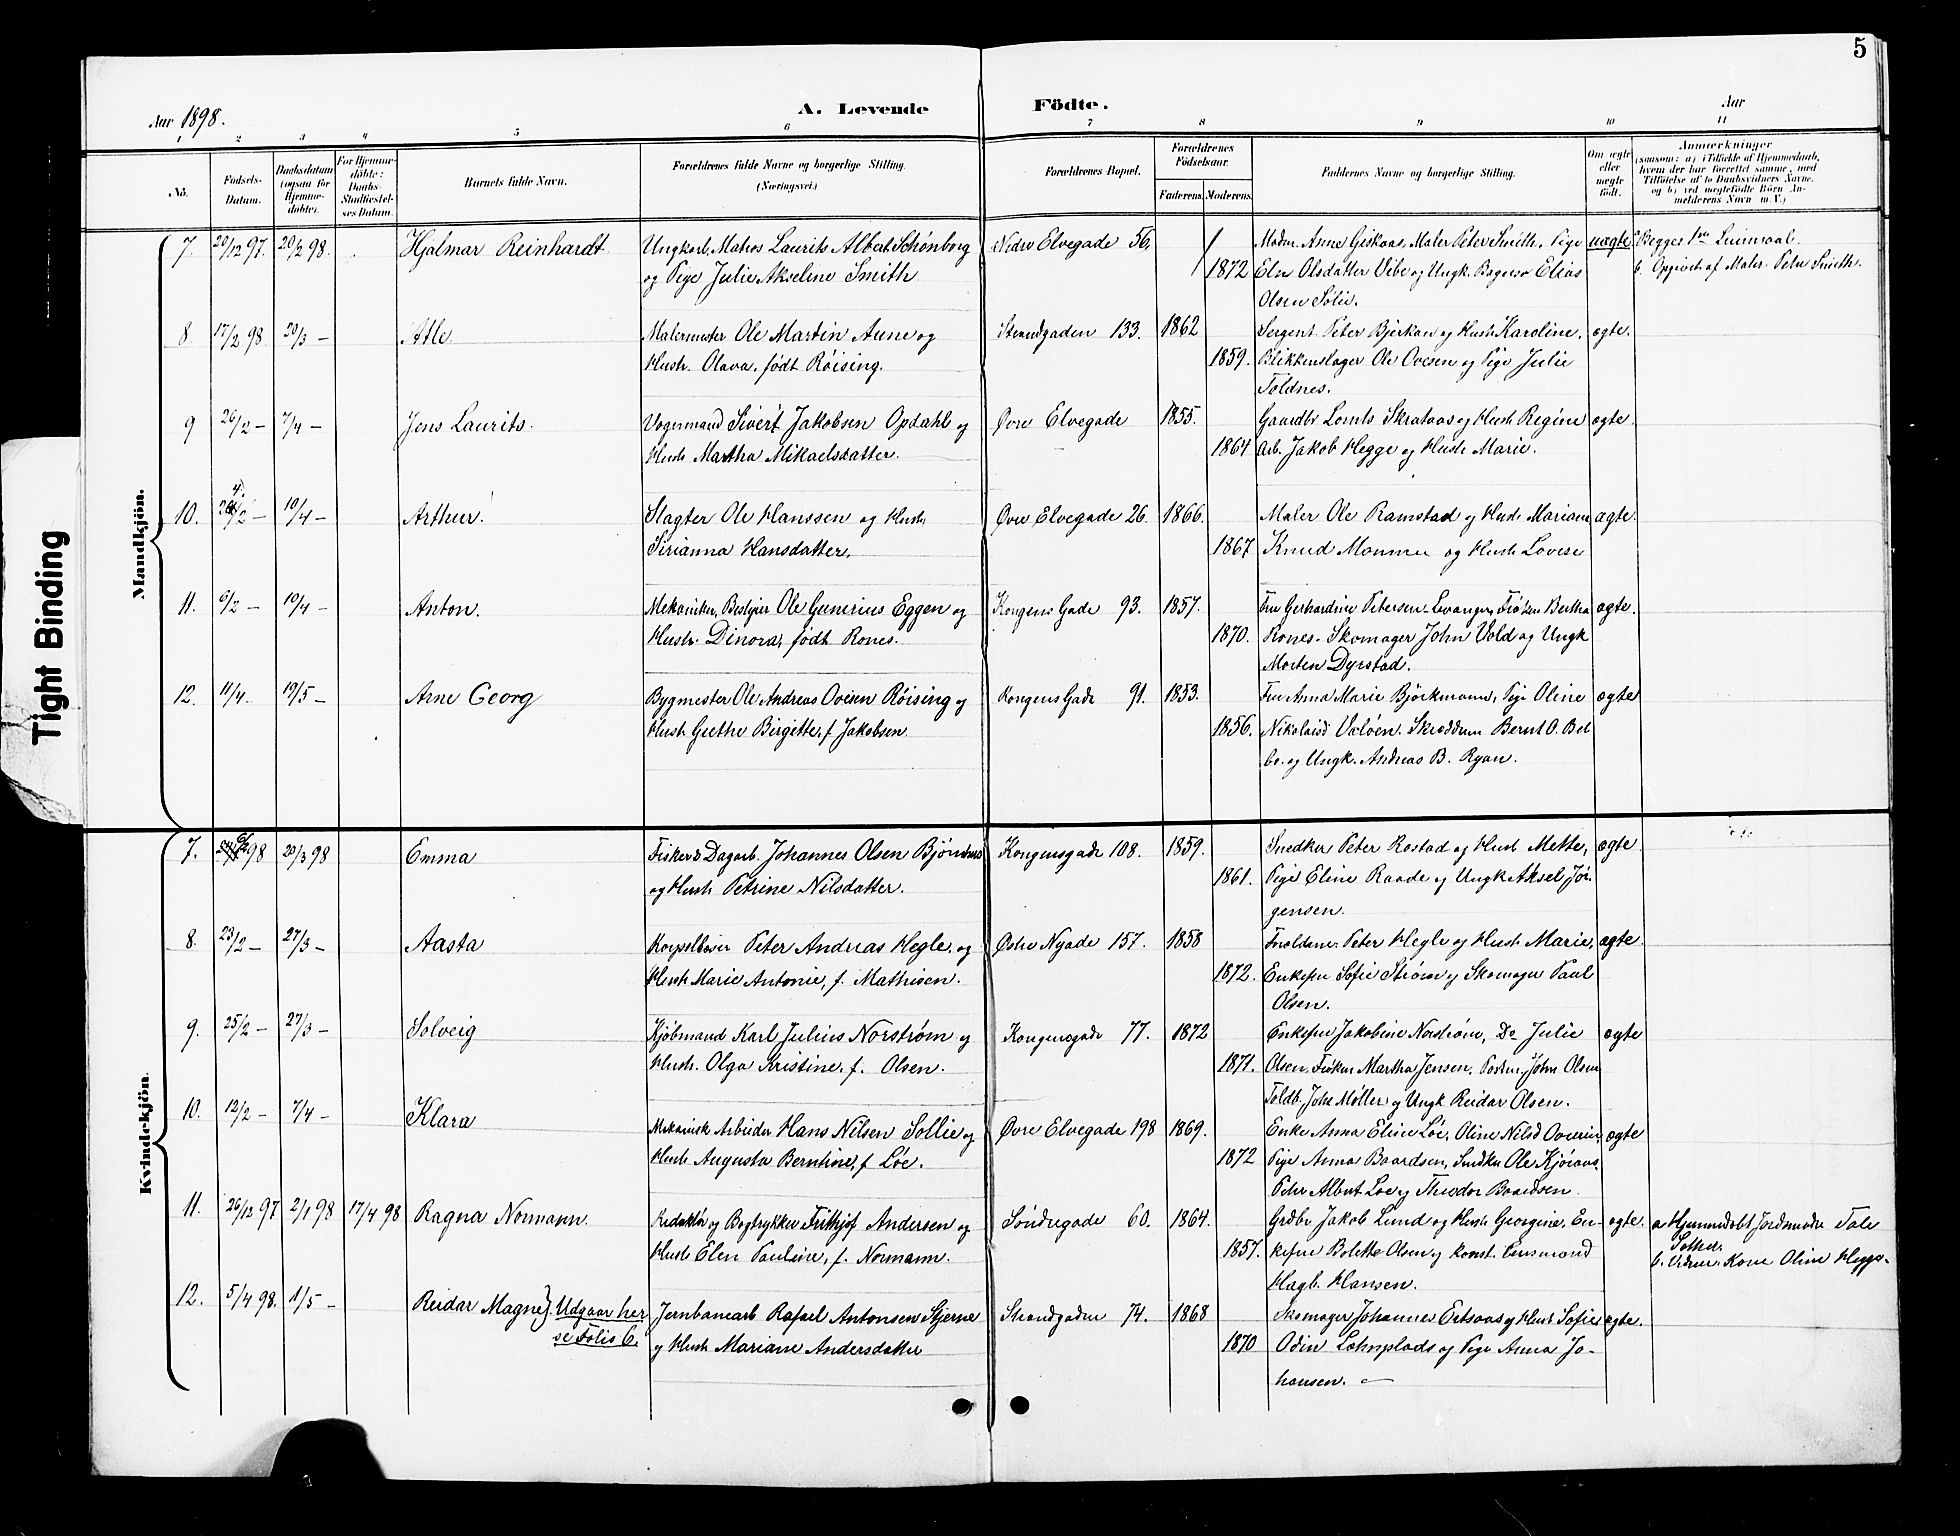 5
Aar 1898.
A. Levende Födte.
Aar
1 2 3 4 5 6 7 8 9 10 11
No.
Födsels-Datum.
Daabsdatum (ogsaa for Hjemme-døbte).
For Hjemme-døbte: Daabs-Stadfæstel-ses Datum.
Barnets fulde Navn.
Forældrenes fulde Navne og borgerlige Stilling. (Næringsvei.)
Forældrenes Bopæl.
Forældrenes Födselsaar.
Faderens. Moderens.
Faddernes Navne og borgerlige Stilling.
Om ægte eller uægte födt.
Anmærkninger
(saasom: a) i Tilfælde af Hjemmedaab, hvem der har forrettet samme, med Tilföielse af to Daabsvidners Navne, og b) ved uægtefödte Börn An-melderens Navn m. V.)
Mandkjön.
7. 20/12 97. 20/2 98. Hjalmar Reinhardt. Ungkarl, Matros Laurits Albert Schønberg Nedre Elvegade 56. / Moder. Anne Giskaas, Maler Peter Smith, Pige uægte Begges 1ste Leiermaal.
og Pige Julie Akseline Smith 1872 Elen Olsdatter Vibe og Ungk. Bagersv Elias b. Opgivet af Maler Peter Smith.
Olsen Sølie.
8 17/2 98. 20/3 — Atle Malermester Ole Martin Aune og Strandgaden 133. 1862 Sergent Peter Bjerkan og Hustr Karoline, ægte.
Hustr. Olava, født Røising. 1859. Blikkenslager Ole Ovesen og Pige Julie
Toldnes.
9 26/2 — 7/4 — Jens Laurits. Vognmand Sivert Jakobsen Opdahl og Øvre Elvegade 1855. Gaardbr Lornts Skrataas og Hustr Regine ægte.
Hustr Martha Mikaelsdatter. 1864 Arb. Jakob Hegge og Hustr Marie.
10. 4/2 — 10/4 — Arthur. Slagter Ole Hanssen og Hustr Øvre Elvegade 26. 1866. Maler Ole Ramstad og Hustr Mariane ægte.
Sirianna Hansdatter. 1867 Knud Mommen og Hustr Lovise
11. 6/2 — 10/4 — Anton. Mekaniker, Bestyrer Ole Gunerius Eggen og Kongens Gade 93. 1857. Fru Gerhardine Petersen, Levanger, Frøken Bertha ægte.
Hustr. Dinora, født Rones. 1870. Rones. Skomager John Vold og Ungk
Morten Dyrstad.
12. 11/4. 19/5 — Arne Georg Bygmester Ole Andreas Ovesen Røising og Kongens Gade 91. 1853. Fru Anna Marie Bjørkmann, Pige Oline ægte
Hustr Grethe Birgitte, f. Jakobsen 1856. Nikolaisd Valøen. Skrædderm Bernt O. Bol
bo. og Ungk. Andreas B. Ryan.
Kvindekjön.
7. 98 20/3 98 Emma Fisker & Dagarb. Johannes Olsen Kongensgade 108. 1859. Snedker Peter Rostad og Hustr Mette, ægte
og Hustr Petrine Nilsdatter. 1861. Pige Eline Raade og Ungk Aksel Jør-
gensen.
8. 23/2 — 27/3 — Aasta Peter Andreas Hegle og Østre Nygade 157. 1858 Peter Hegle og Hustr Marie, ægte
Hustr Marie Antonie, f. Mathisen. 1872. Enkefru Sofie Strøm og Skomager Paul
Olsen.
9. 25/2 — 27/3 — Solveig Kjøbmand Karl Julius Norstrøm og Kongensgade 77. 1872 Enkefru Jakobine Norstrøm, Do Julie ægte
Hustr. Olga Kristine, f. Olsen. 1871. Olsen, Frøken Martha Jensen, John Olsen
Toldb. Johs Møller og Ungk Reidar Olsen.
10. 12/2 — 7/4 — Klara Mekanisk Arbeider Hans Nilsen Sollie og Øvre Elvegade 198 1869. Enke Anna Eline Løe, Oline Nilsd ægte
Hustr Augusta Berntine, f Løe. 1872 Pige Anna Baardsen, Snedker Ole Kjøraas,
Peter Albert Loe og Theodor Baardsen
11. 26/12 97 2/1 98 17/4 98 Ragna Normann. Redaktør og Bogtrykker Frithjof Andersen og Søndregade 60. 1864. Grdbr Jakob Lund og Hustr Georgine, En- ægte. a. Hjemmedøbt Jordemoder Tale
Hustr Elen Pauline, f. Normann. 1857. kefru Bolette Olsen og Konst. Hagb. Hansen. b. Vidne. Kone Oline Hegge.
12. 5/4 98. 1/5 — Reidar Magne } Udgaar her se Folio 6. Jernbanearb Rafael Antonsen Stjerne Strandgaden 74. 1868 Skomager Johannes og Hustr Sofie ægte.
og Hustr Mariane Andersdatter 1870 Odin Løhnplads og Pige Anna Jo-
hansen. —
Tight Binding